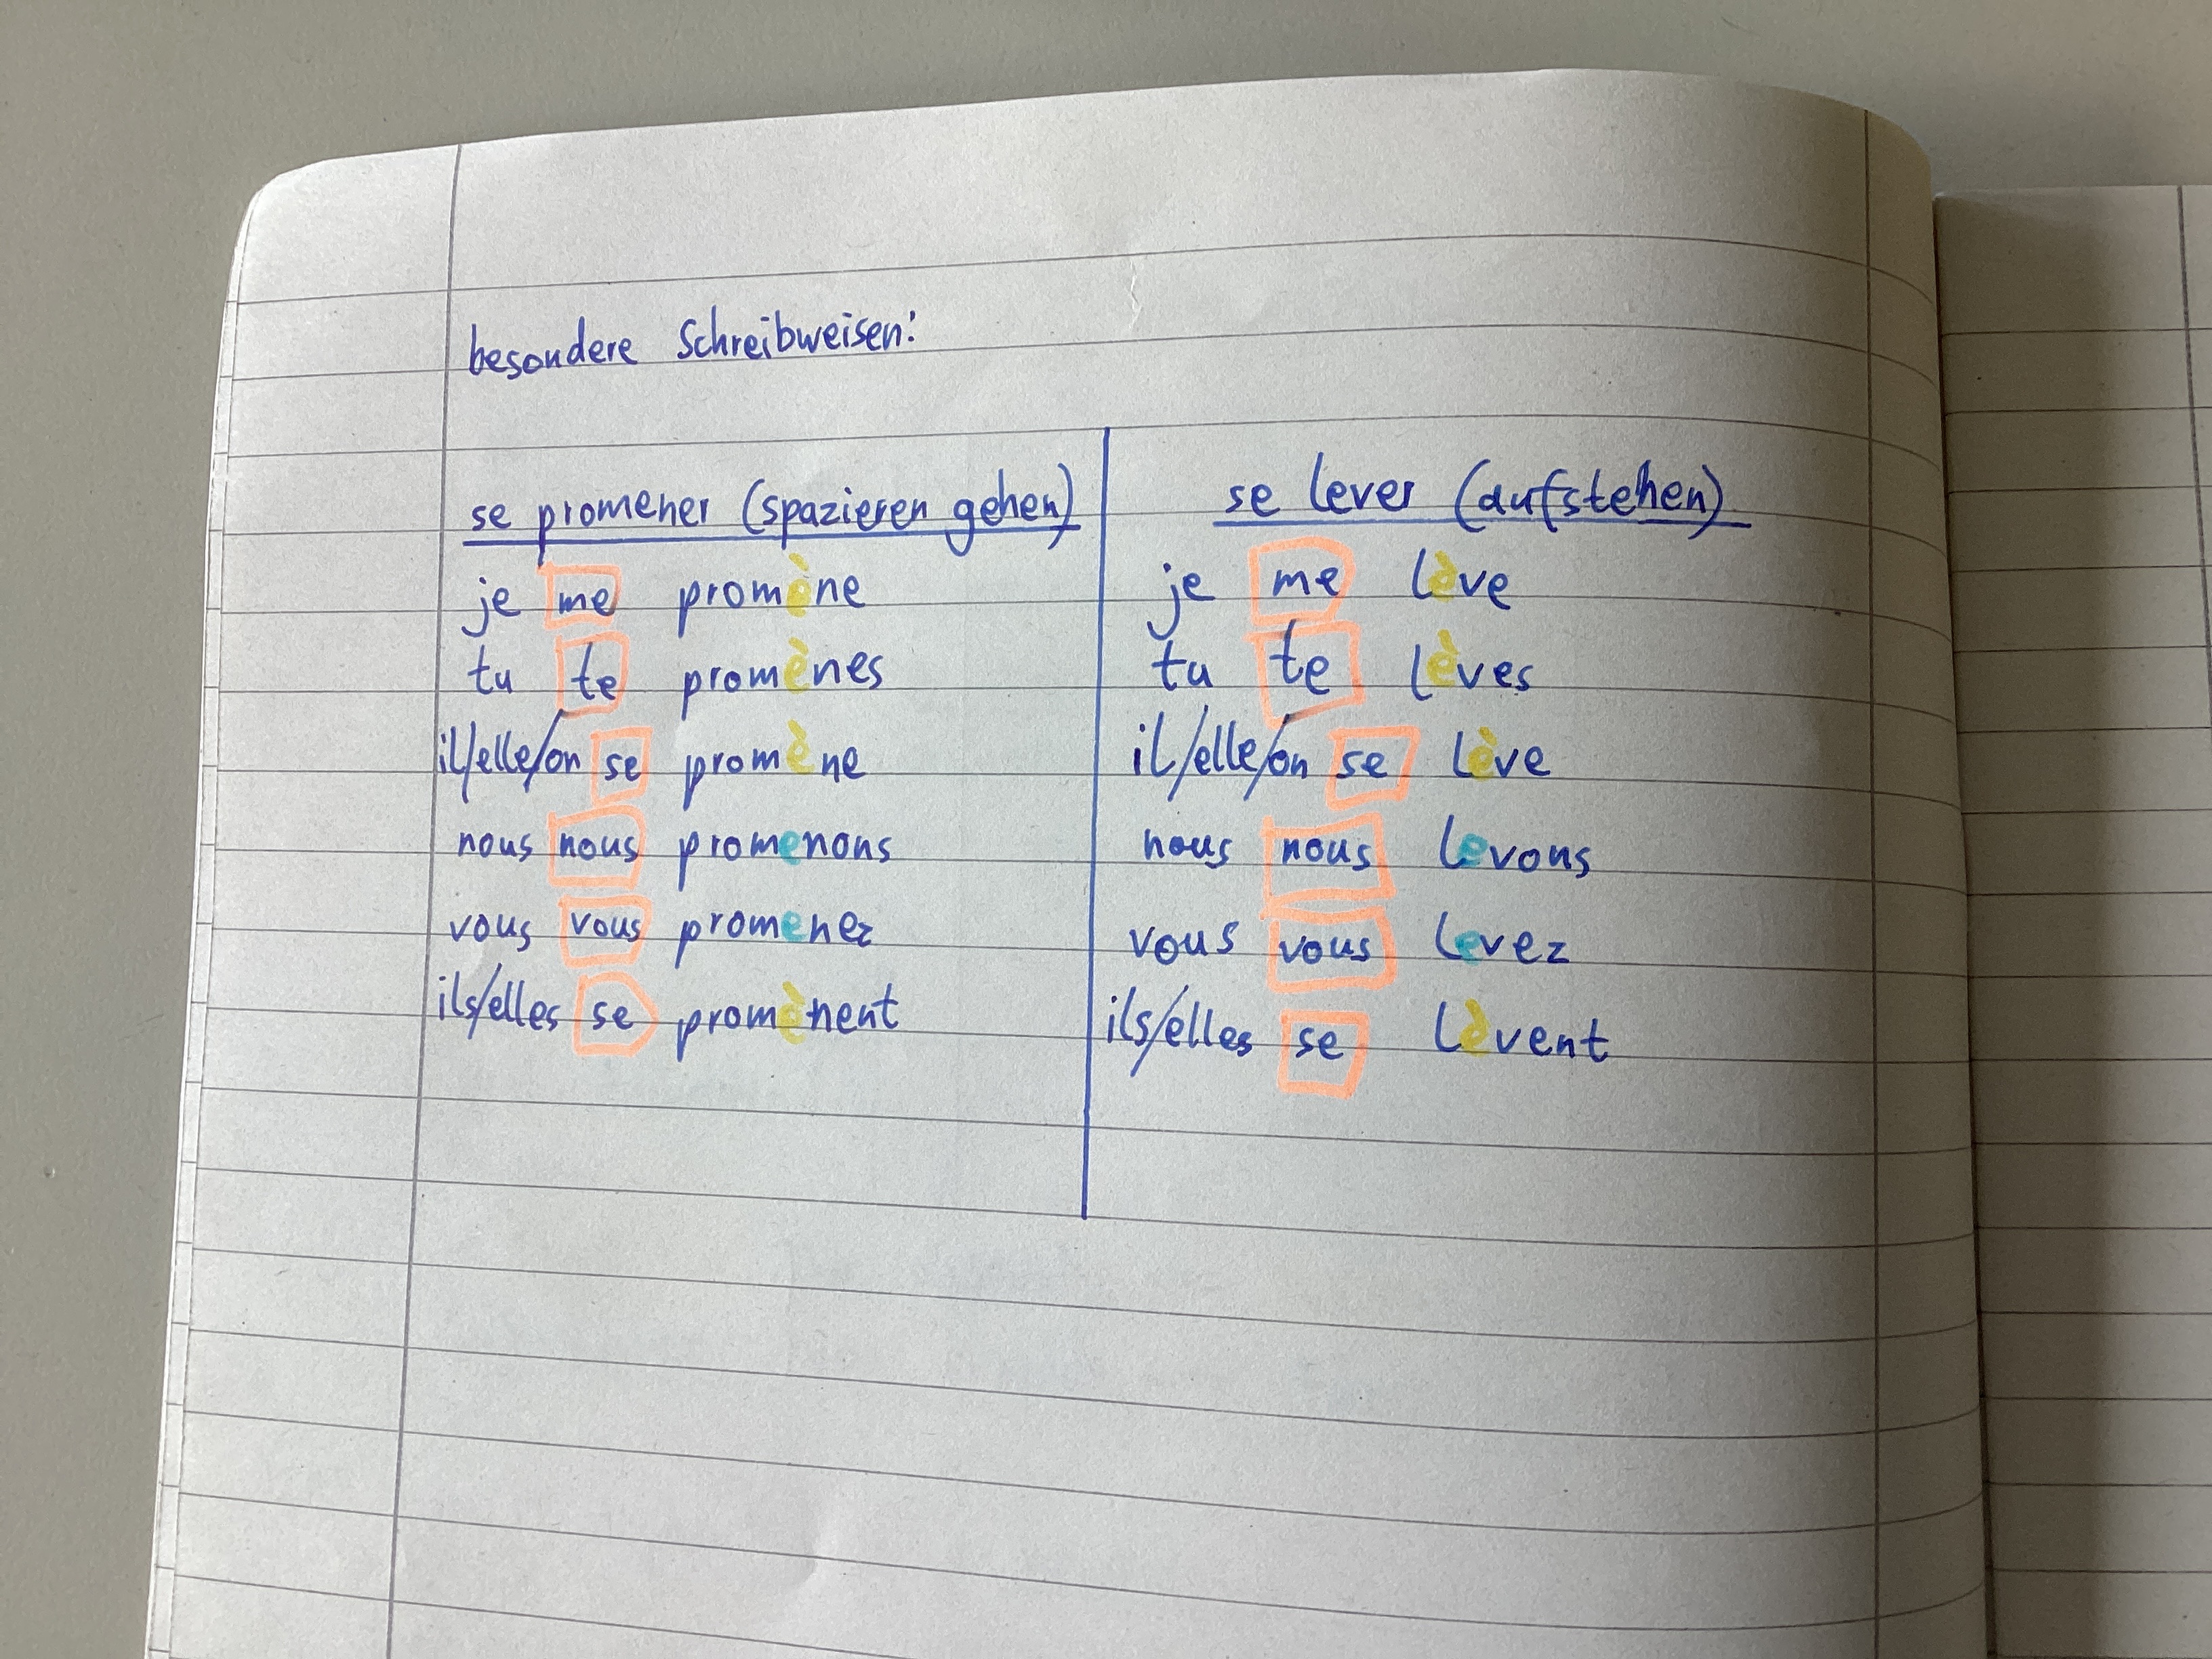 besondere Schreibweisen:
se promener (spazieren gehen)
je me promène
tu te promènes
il/elle/on se promène
nous nous promenons
vous vous promenez
ils/elles se promènent
se lever (aufstehen)
je me lève
tu te lèves
il/elle/on se lève
nous nous levons
vous vous levez
ils/elles se lèvent